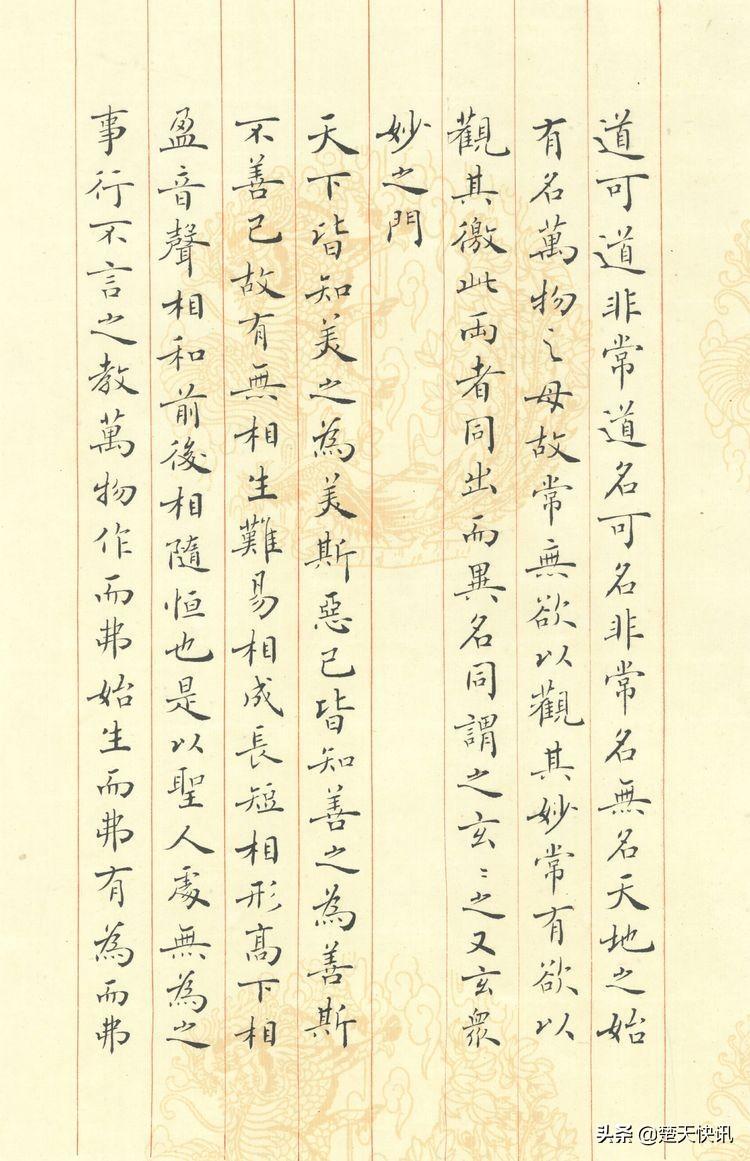 道可道非常道名可名非常名無名天地之始
有名萬物之母故常無欲以觀其妙常有欲以
觀其徼此兩者同出而異名同謂之玄〻之又玄衆
妙之門
天下皆知美之為美斯惡已皆知善之為善斯
不善已故有無相生難易相成長短相形高下相
盈音聲相和前後相隨恒也是以聖人處無為之
事行不言之教萬物作而弗始生而弗有為而弗
头条 @楚天快讯